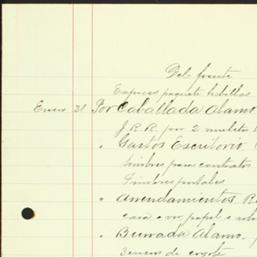 Del frente
Express paquete tobillas
Enero 31 Por Caballada Alamo
J. R. R. por 2 mulitos
" Gastos Escritorio
timbres para contratos
Timbres postales
" Arrendamientos. R
casa
" Burrada Alamo.
de coyote